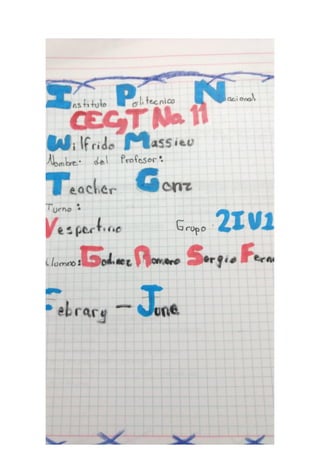 Instituto Politecnico Nacional
CEC,T No. 11
Wilfrido Massieu
Nombre: del Profesor:
Teacher Gonz
Turno:
Vespertino Grupo: 2IV1
Alumno: Romero Sergio Fern
Febrary - June